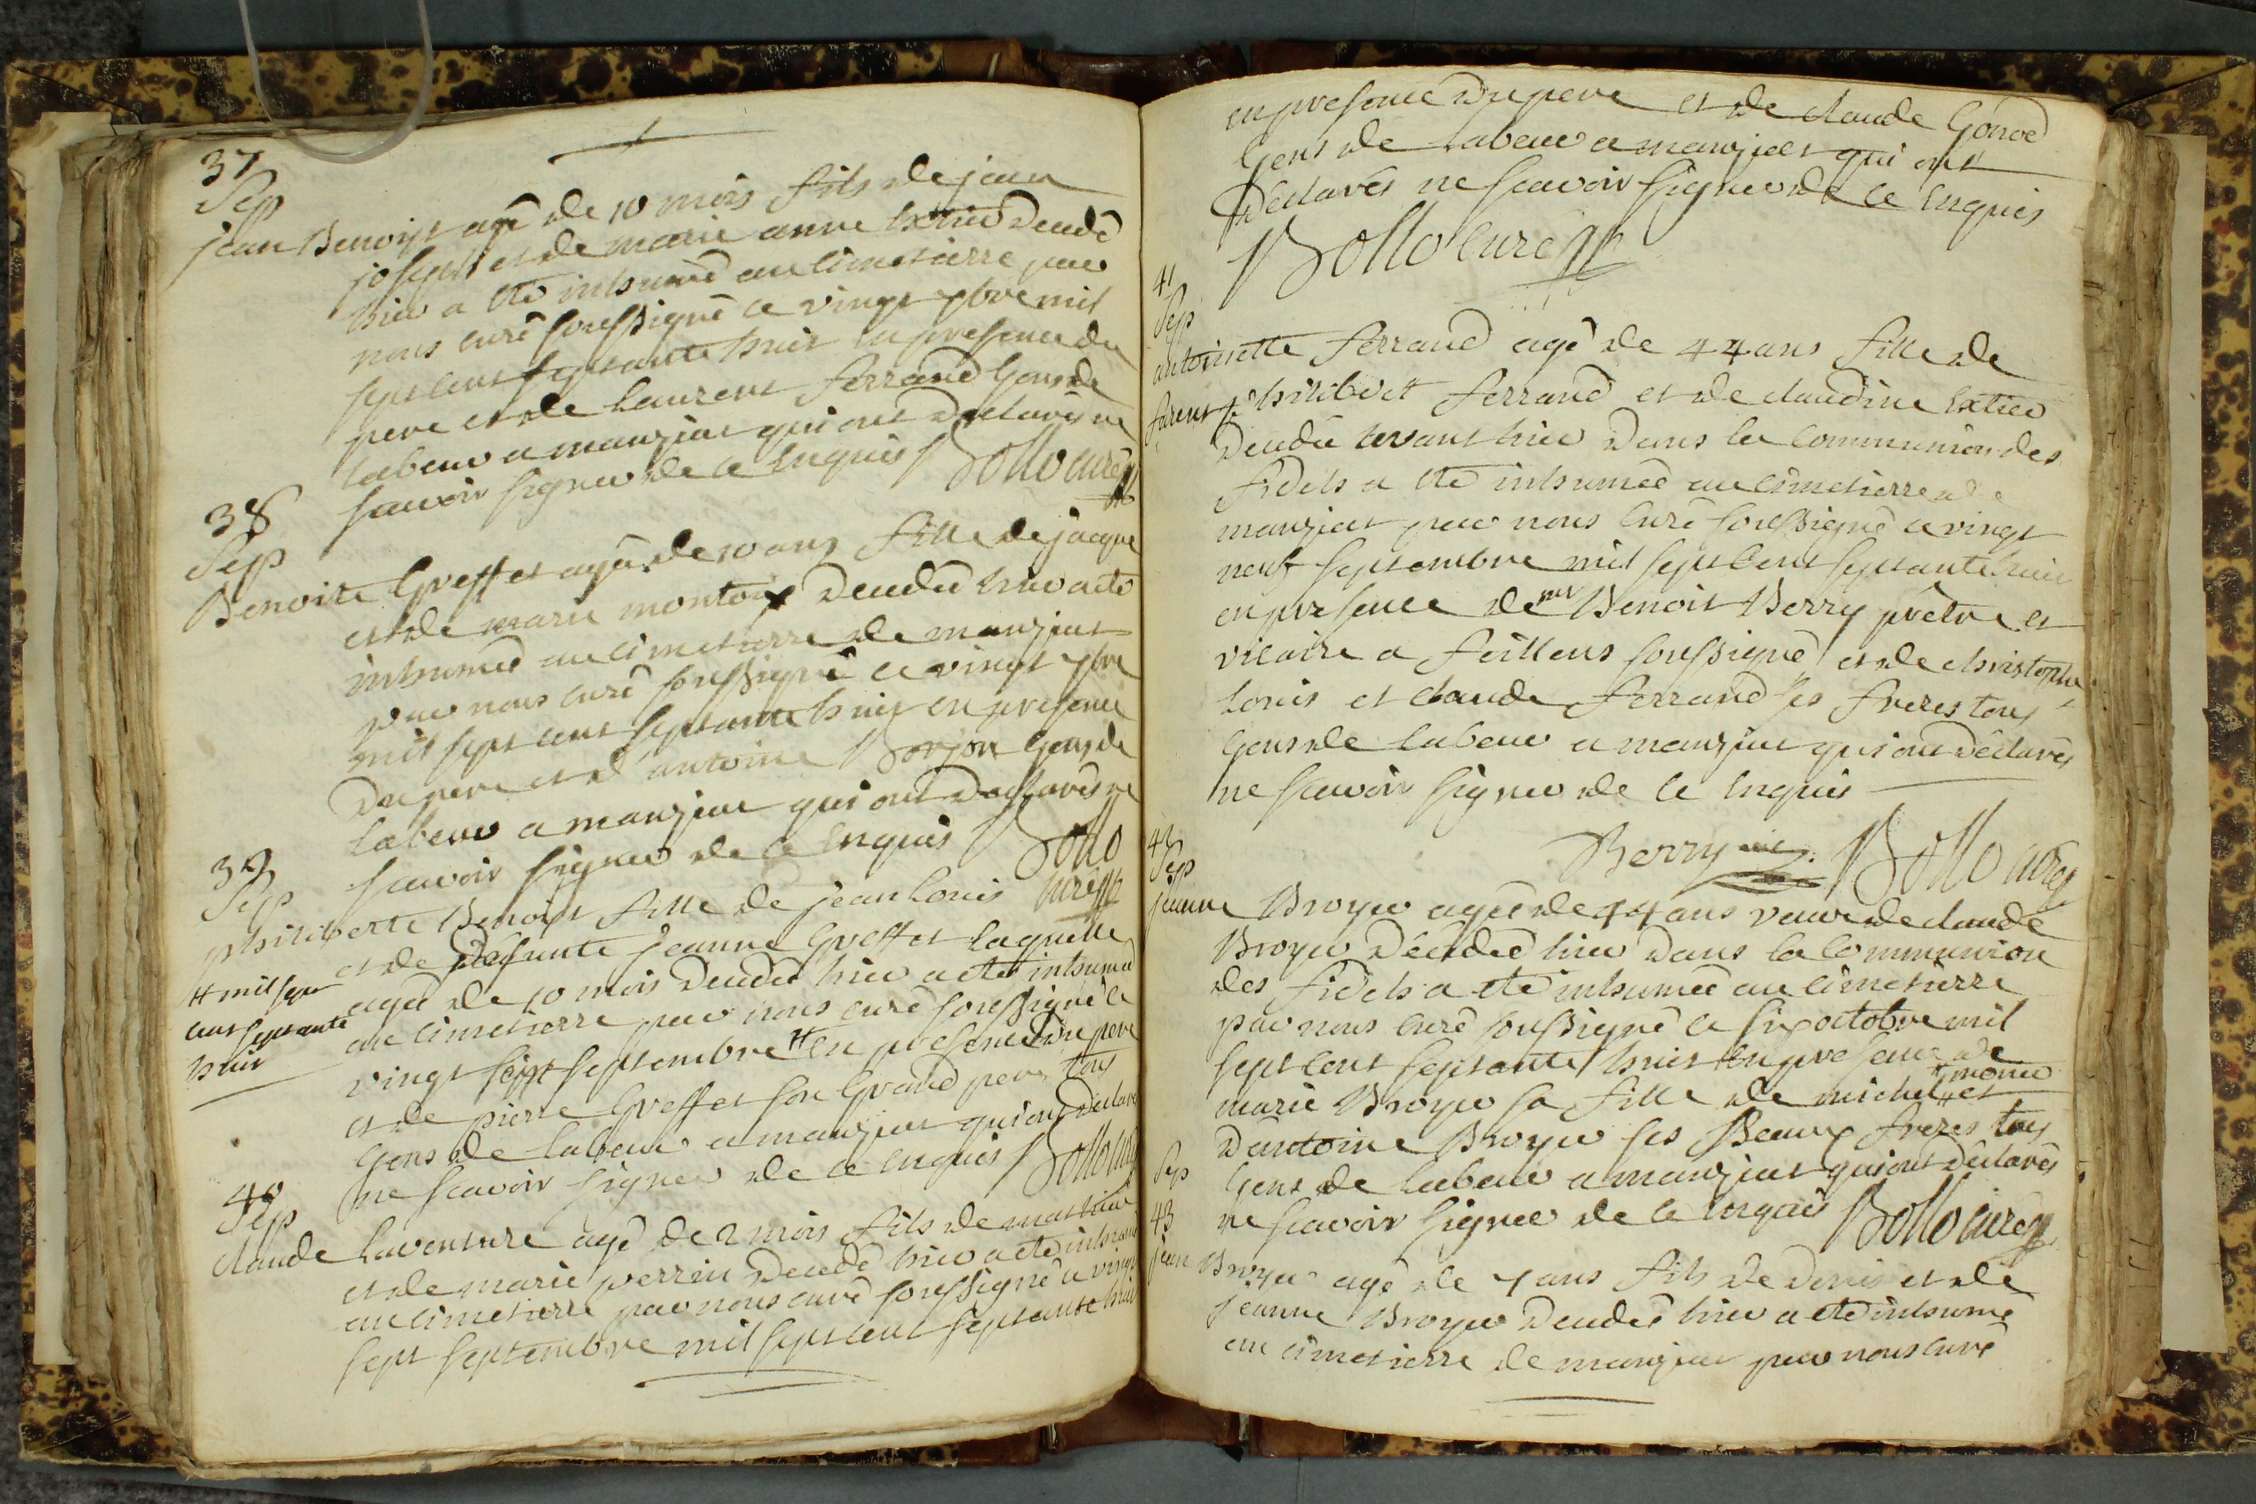 37
Sep
jean Benoist agé de 10 mois fils de jean
joseph et de marie anne Extier decedé
hier a été inhumé au cimetierre par
nous curé soussigné ce vingt 7bre mil
sept cent septante huit en presence du
pere et de Laurent ferrand Gens de
labeur a manziat qui ont declarés ne
scavoir signer de ce enquis Bollo curé
38
Sep
Benoite Greffet agée de 10 ans fille de jacque
et de marie montoix decedée hier a été
inhumée au cimetierre de manziat
par nous curé soussigné ce vingt 7bre
mil sept cent septante huit en presence
du pere et d'antoine Borjon Gens de
labeur a manziat qui ont declarés ne
scavoir signer de ce enquis Bollo
curé
39
Sep
philiberte Benoist fille de jean louis
et de defunte jeanne Greffet laquelle
agée de 10 mois decedée hier a eté inhumée
au cimetierre par nous curé soussigné ce
vingt sept septembre # en presence du pere
# mil sept
cent septante
huit
et de pierre Greffet son Grand pere tous
Gens de labeur a manziat qui ont declaré
ne scavoir signer de ce enquis Bollo curé
40
Sep
claude Laventure agé de 2 mois fils de mathieu
et de marie perrin decedé hier a eté inhumé
au cimetierre par nous curé soussigné ce vingt
sept septembre mil sept cent septante huit
en presence du pere et de claude Gonod
Gens de labeur a manziat qui ont
declarés ne scavoir signer de ce enquis
Bollo curé
41
Sep
antoinette ferrand agé de 44 ans fille de
philibert ferrand et de claudine Extier
decedée avant hier dans la communion des
fidels a eté inhumée au cimetierre de
manziat par nous curé soussigné ce vingt
neuf septembre mil sept cent septante huit
en presence de mr Benoit Berry prêtre et
vicaire a feillens soussigné et de christophe
louis et claude ferrand ses freres tous
Gens de labeur a manziat qui ont déclarés
ne scavoir signer de ce enquis
Berry vic. Bollo curé
42
Sep
jeanne Broyer agée de 44 ans veuve de claude
Broyer decedée hier dans la communion
des fidels a eté inhumée au cimetierre
par nous curé soussigné ce six octobre mil
sept cent septante huit en presence de
marie Broyer sa fille de michel # et
d'antoine Broyer ses Beaux freres tous
Gens de labeur a manziat qui ont declarés
ne scavoir signer de ce enquis Bollo curé
Sep
43
jean Broyer agé de 7 ans fils de denis et de
jeanne Broyer decedé hier a eté inhumé
au cimetierre de manziat par nous curé